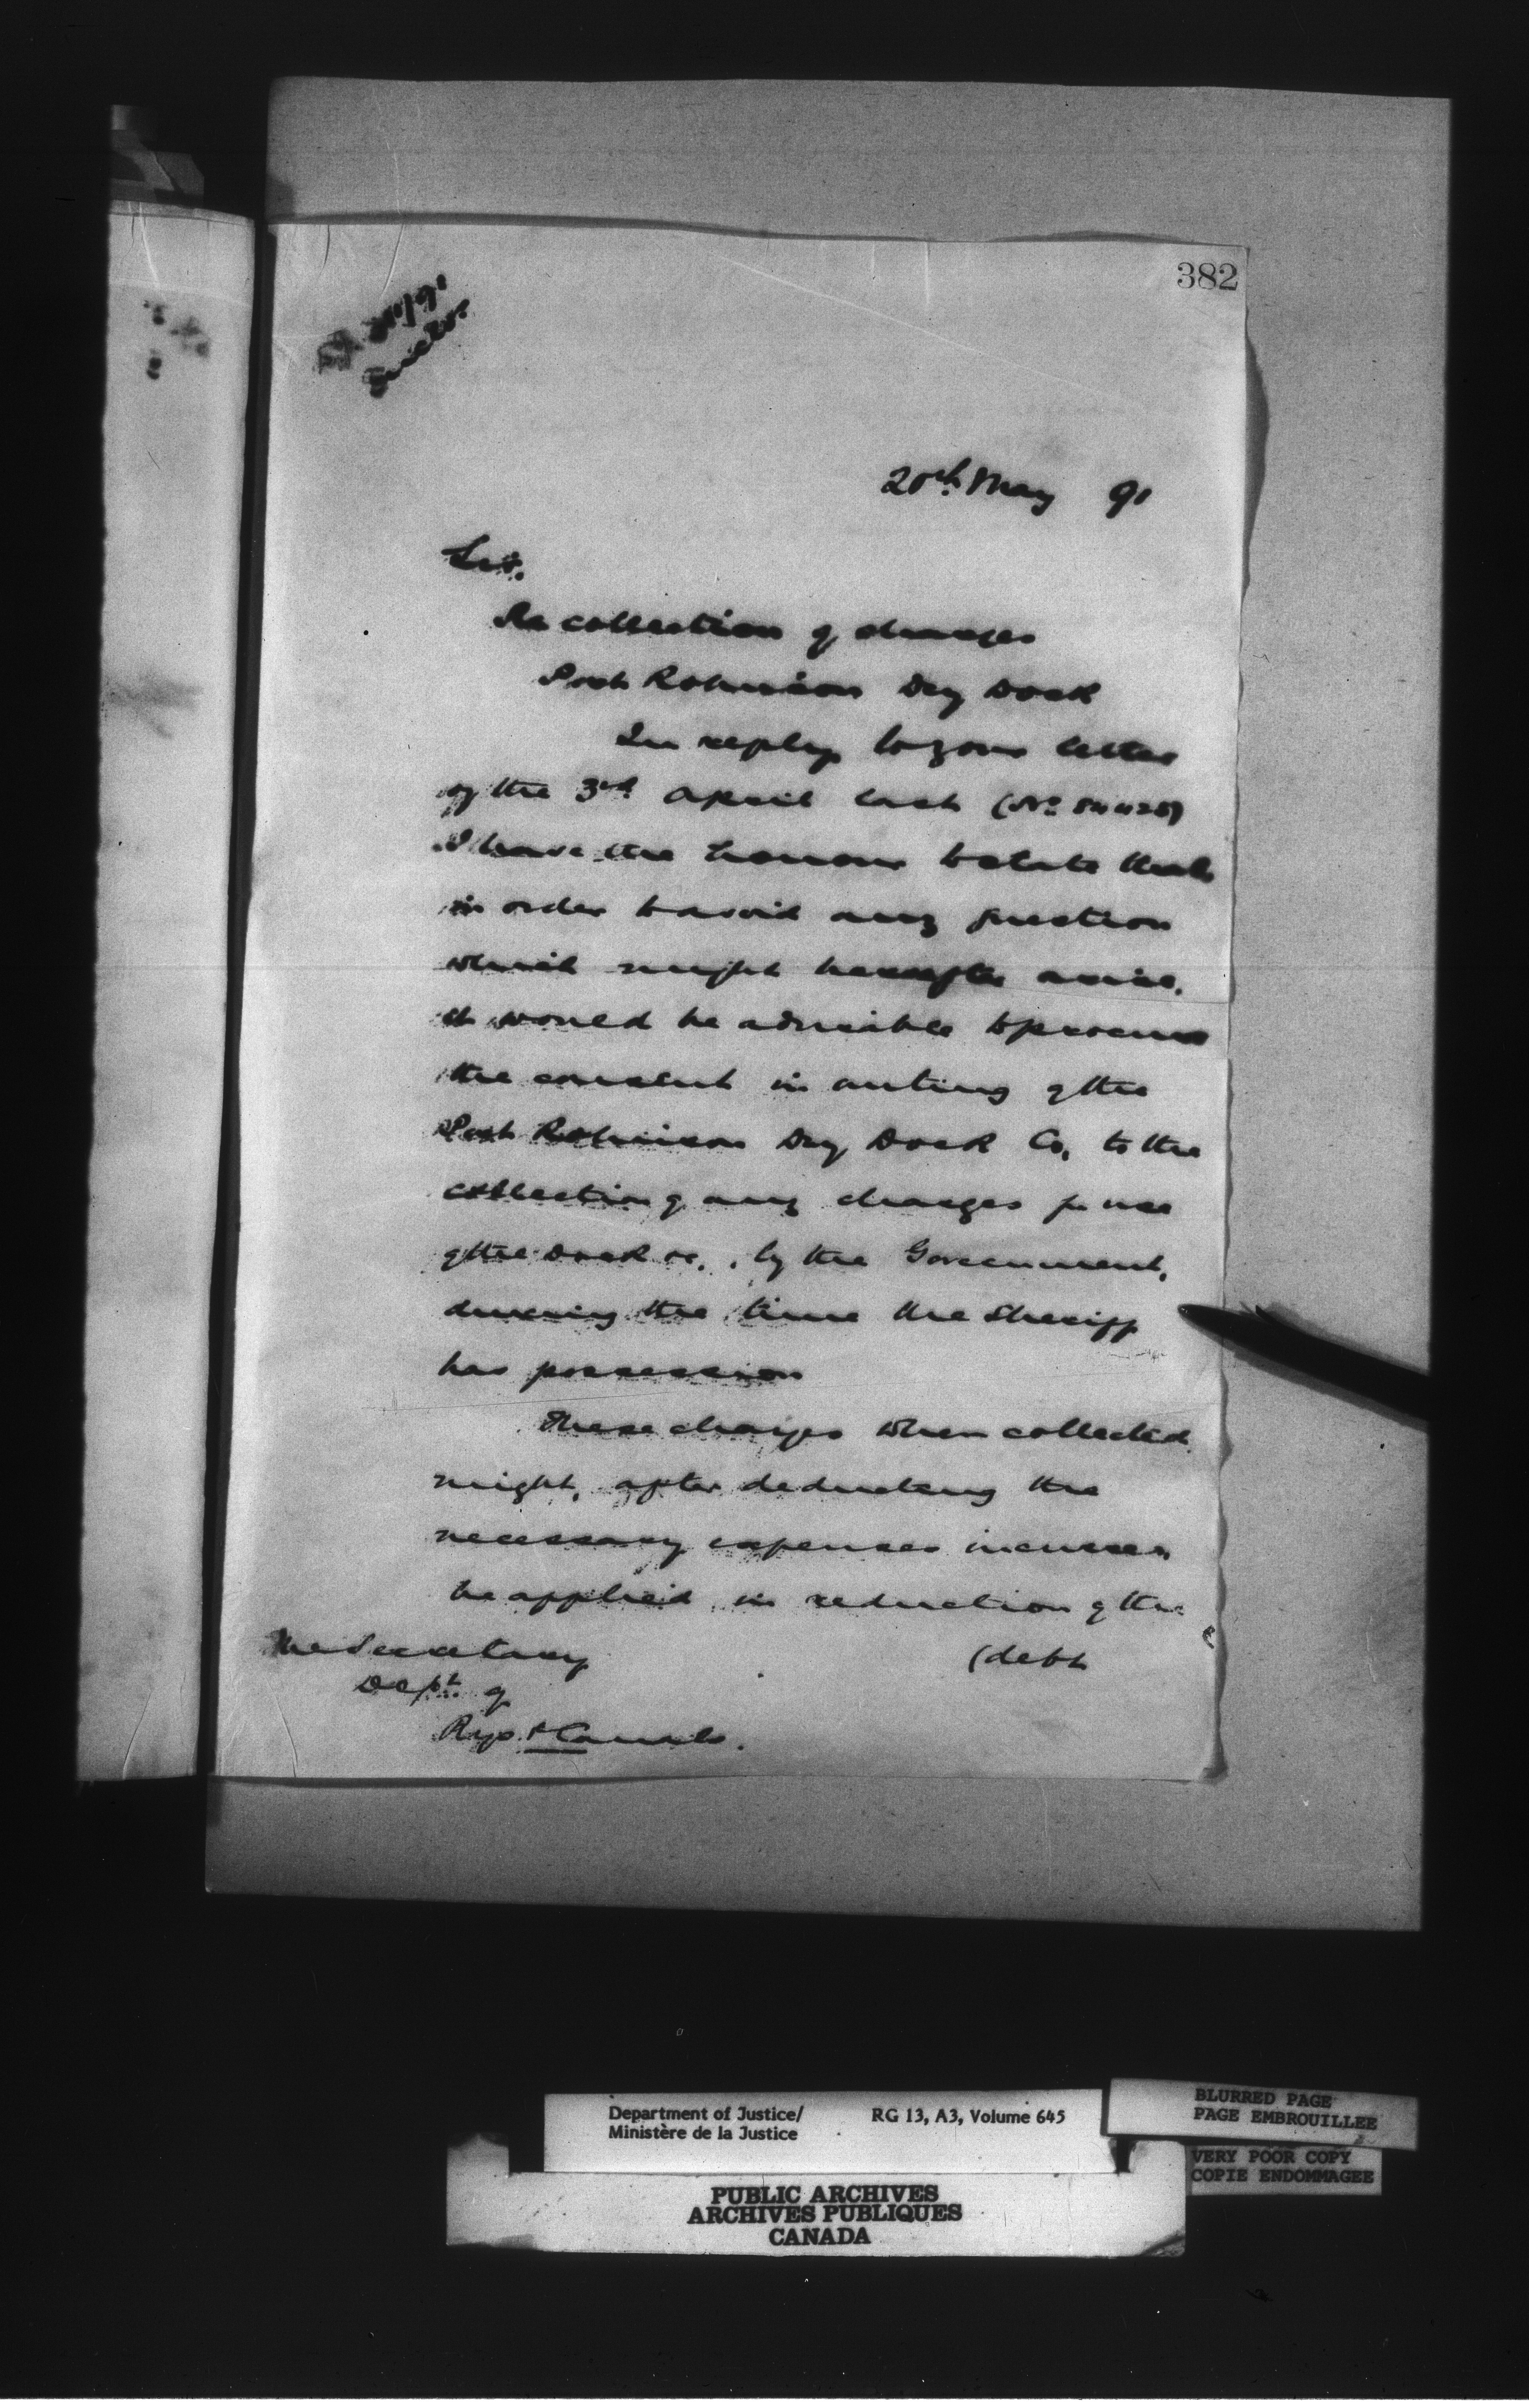 382
20th May 91
Sir.
Re collection of charges
Port Robinson Dry Dock
In reply to your letter
of the 3rd April last (No 84428)
I have the honour to state that
in order to avoid any question
which might hereafter arise,
it would be advisable to procure
the consent in writing of the
Port Robinson Dry Dock Co. to the
collection of any charges for use
of the Dock &c., by the Government,
during the time the Sheriff
has possession
These charges when collected
might, after deducting the
necessary expenses incurred
be applied in reduction of the
(debt
The Secretary
Dept. of
Rys. & Canals.
Department of Justice/
Ministère de la Justice
RG 13, A3, Volume 645
BLURRED PAGE
PAGE EMBROUILLEE
VERY POOR COPY
COPIE ENDOMMAGEE
PUBLIC ARCHIVES
ARCHIVES PUBLIQUES
CANADA